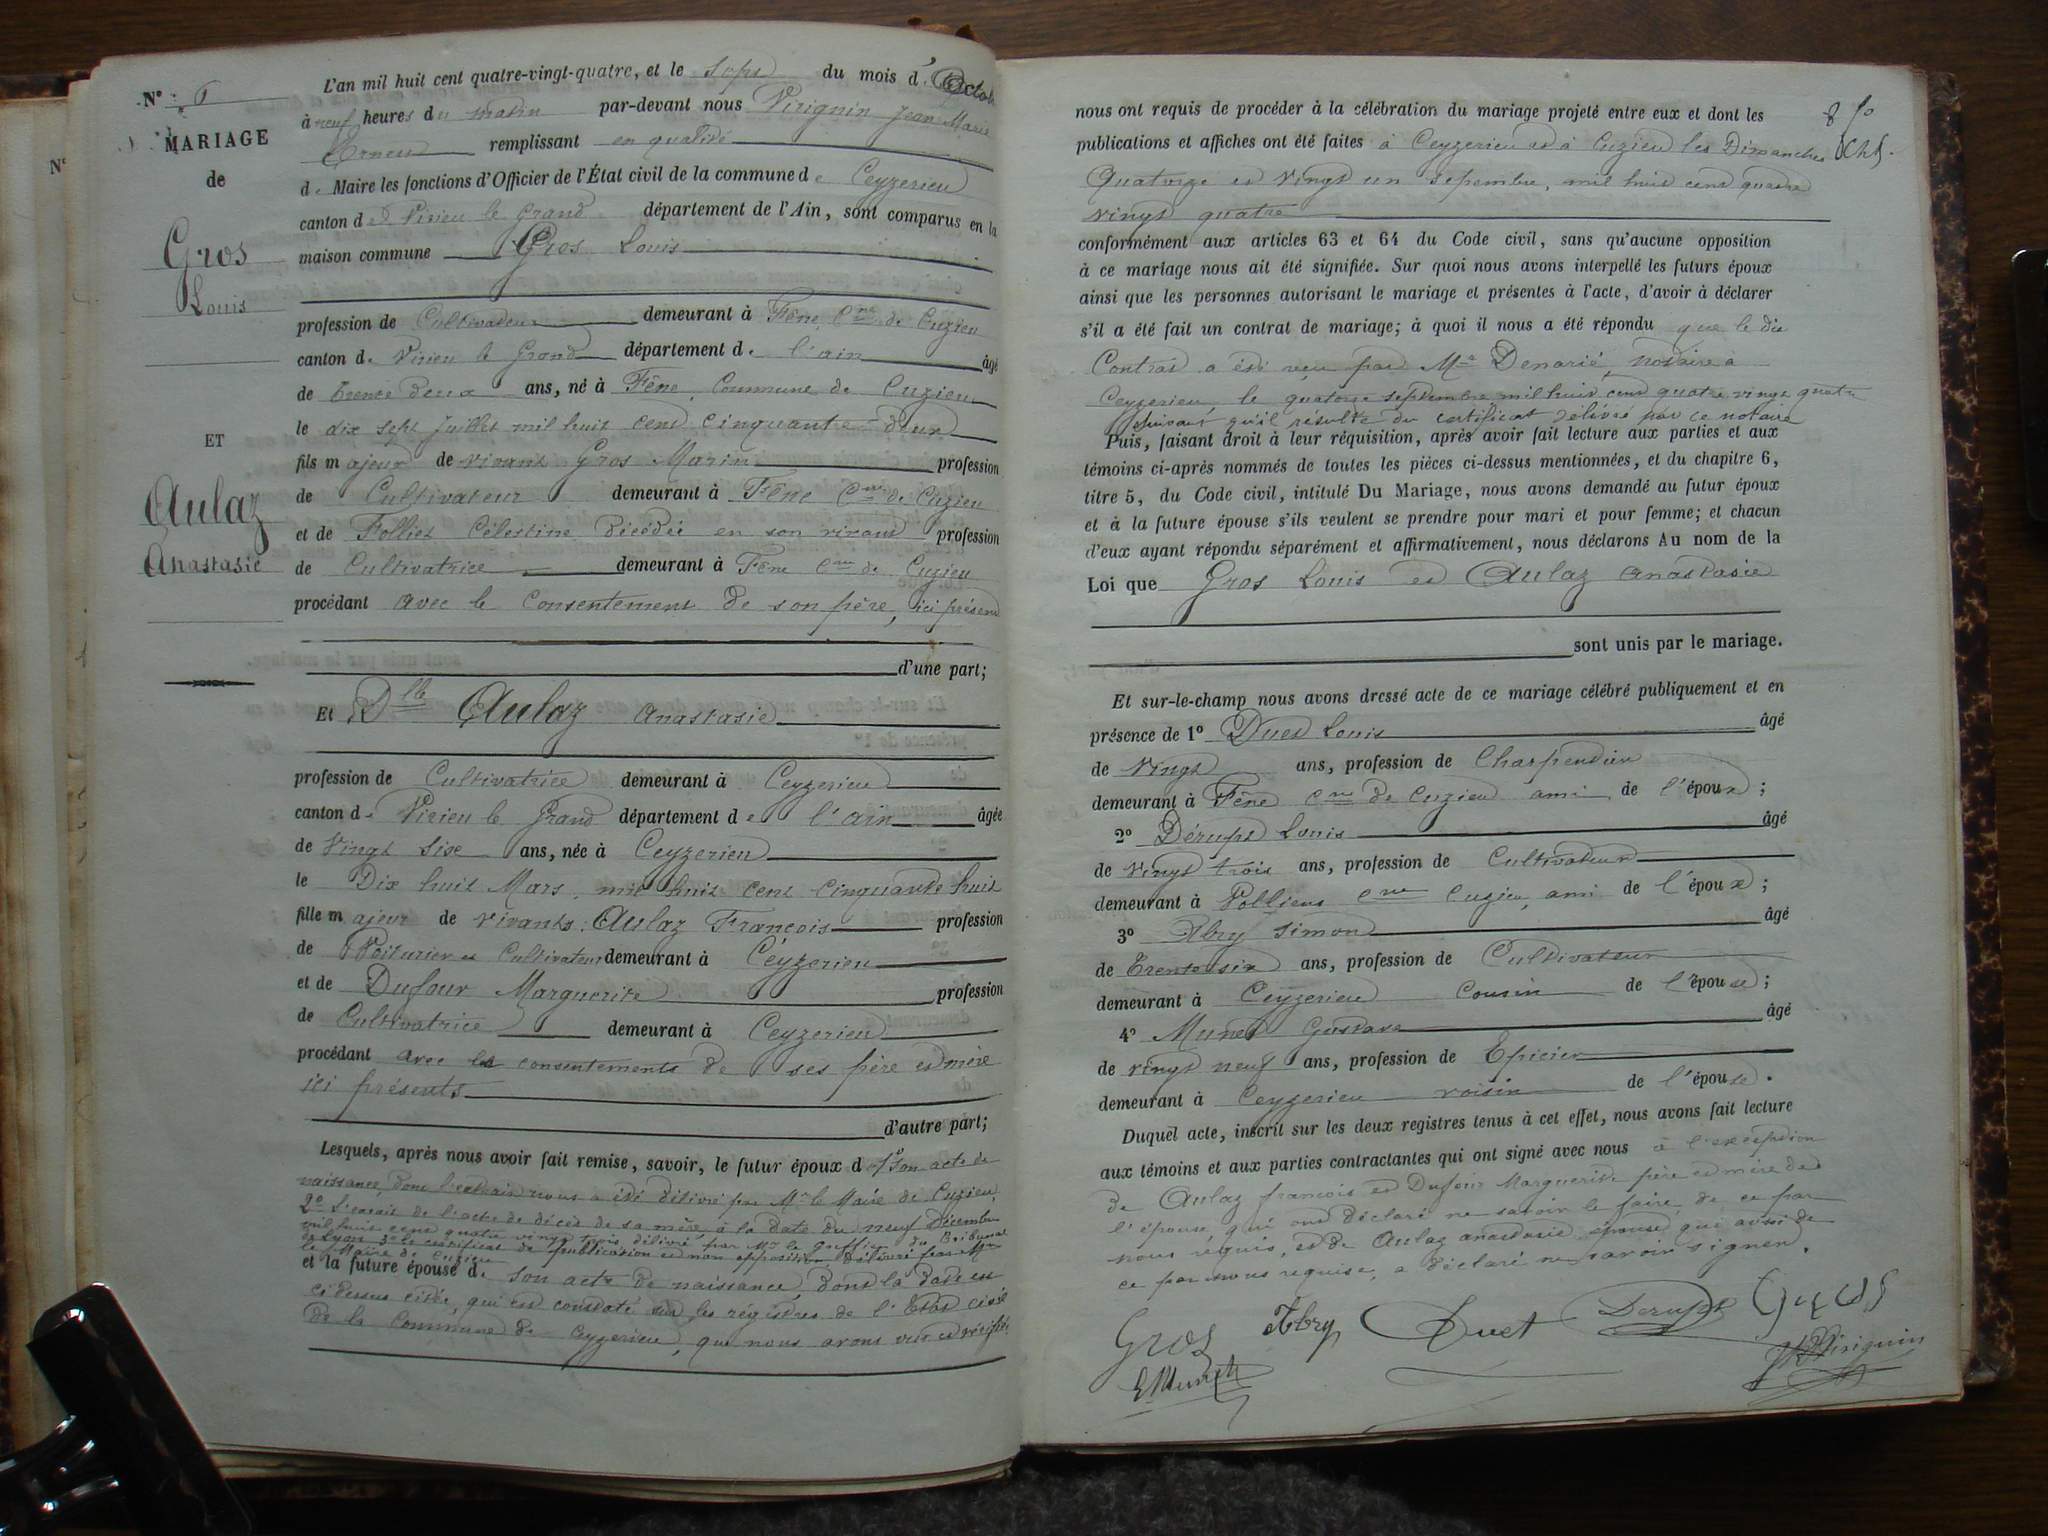 N° 6
MARIAGE
de
Gros
Louis
ET
Aulaz
Anastasie
N°
L'an mil huit cent quatre-vingt-quatre, et le sept du mois d'Octob
à neuf heures du matin par-devant nous Virignin Jean Marie
remplissant en qualité
de Maire les fonctions d'Officier de l'État civil de la commune de Ceyzerieu
canton de Virieu le Grand département de l'Ain, sont comparus en la
maison commune Gros Louis
profession de Cultivateur demeurant à Fêne Cne de Cuzieu
canton de Virieu le Grand département de l'ain âgé
de trente deux ans, né à Fêne, Commune de Cuzieu
le dix sept Juillet mil huit cent cinquante deux
fils majeur de vivant Gros Marin profession
de Cultivateur demeurant à Fêne Cne de Cuzieu
et de Folliet Célestine décédée en son vivant profession
de Cultivatrice demeurant à Fêne Cne de Cuzieu
procédant avec le Consentement de son père, ici présent
d'une part;
Et Dlle Aulaz anastasie
profession de Cultivatrice demeurant à Ceyzerieu
canton de Virieu le Grand département de l'ain âgée
de Vingt six ans, née à Ceyzerieu
le Dix huit Mars, mil huit cent cinquante huit
fille majeur de vivants Aulaz François profession
de Voiturier et Cultivateur demeurant à Ceyzerieu
et de Dufour Marguerite profession
de Cultivatrice demeurant à Ceyzerieu
procédant avec les consentements de ses père et mère
ici présents
d'autre part;
Lesquels, après nous avoir fait remise, savoir, le futur époux d 1° Son acte de
naissance, dont l'extrait nous a été délivré par Mr le Maire de Cuzieu,
2° L'extrait de l'acte de décès de sa mère, à la date du neuf Décembre
mil huit cent quatre vingt trois, délivré par Mr le Greffier du Tribunal
de Lyon 3° le certificat de publication et non opposition délivré par Mr
le Maire de Cuzieu
et la future épouse d. Son acte de naissance, dont la date est
ci dessus citée, qui est constaté sur les régistres de l'Etat civil
de la Commune de Ceyzerieu, que nous avons vus et vérifiés
nous ont requis de procéder à la célébration du mariage projeté entre eux et dont les
publications et affiches ont été faites à Ceyzerieu et à Cuzieu les Dimanches
Quatorze et vingt un septembre, mil huit cent quatre
vingt quatre
conformément aux articles 63 et 64 du Code civil, sans qu'aucune opposition
à ce mariage nous ait été signifiée. Sur quoi nous avons interpellé les futurs époux
ainsi que les personnes autorisant le mariage et présentes à l'acte, d'avoir à déclarer
s'il a été fait un contrat de mariage; à quoi il nous a été répondu que le dit
Contrat a été reçu par Me Denarié, notaire à
Ceyzerieu, le quatorze septembre mil huit cent quatre vingt quatre
suivant qu'il résulte du certificat délivré par ce notaire
Puis, faisant droit à leur réquisition, après avoir fait lecture aux parties et aux
témoins ci-après nommés de toutes les pièces ci-dessus mentionnées, et du chapitre 6,
titre 5, du Code civil, intitulé Du Mariage, nous avons demandé au futur époux
et à la future épouse s'ils veulent se prendre pour mari et pour femme; et chacun
d'eux ayant répondu séparément et affirmativement, nous déclarons Au nom de la
Loi que Gros Louis et Aulaz anastasie
sont unis par le mariage.
Et sur-le-champ nous avons dressé acte de ce mariage célébré publiquement et en
présence de 1° Duet Louis âgé
de Vingt ans, profession de Charpentier
demeurant à Fêne Cne de Cuzieu ami de l'époux;
2° Dérupt Louis âgé
de vingt trois ans, profession de Cultivateur
demeurant à Volliens Cne Cuzieu, ami de l'époux;
3° Abry Simon âgé
de Trente six ans, profession de Cultivateur
demeurant à Ceyzerieu Cousin de l'épouse;
4° Munet Gustave âgé
de vingt neuf ans, profession de Epicier
demeurant à Ceyzerieu voisin de l'épouse.
Duquel acte, inscrit sur les deux registres tenus à cet effet, nous avons fait lecture
aux témoins et aux parties contractantes qui ont signé avec nous à l'exception
de Aulaz françois et Dufour Marguerite père et mère de
l'épouse, qui ont déclaré ne savoir le faire, de ce par
nous requis, et de Aulaz anastasie épouse, qui aussi de
ce par nous requise, a déclaré ne savoir signer.
Gros Abry Duet Derupt Gros
Munet Virignin